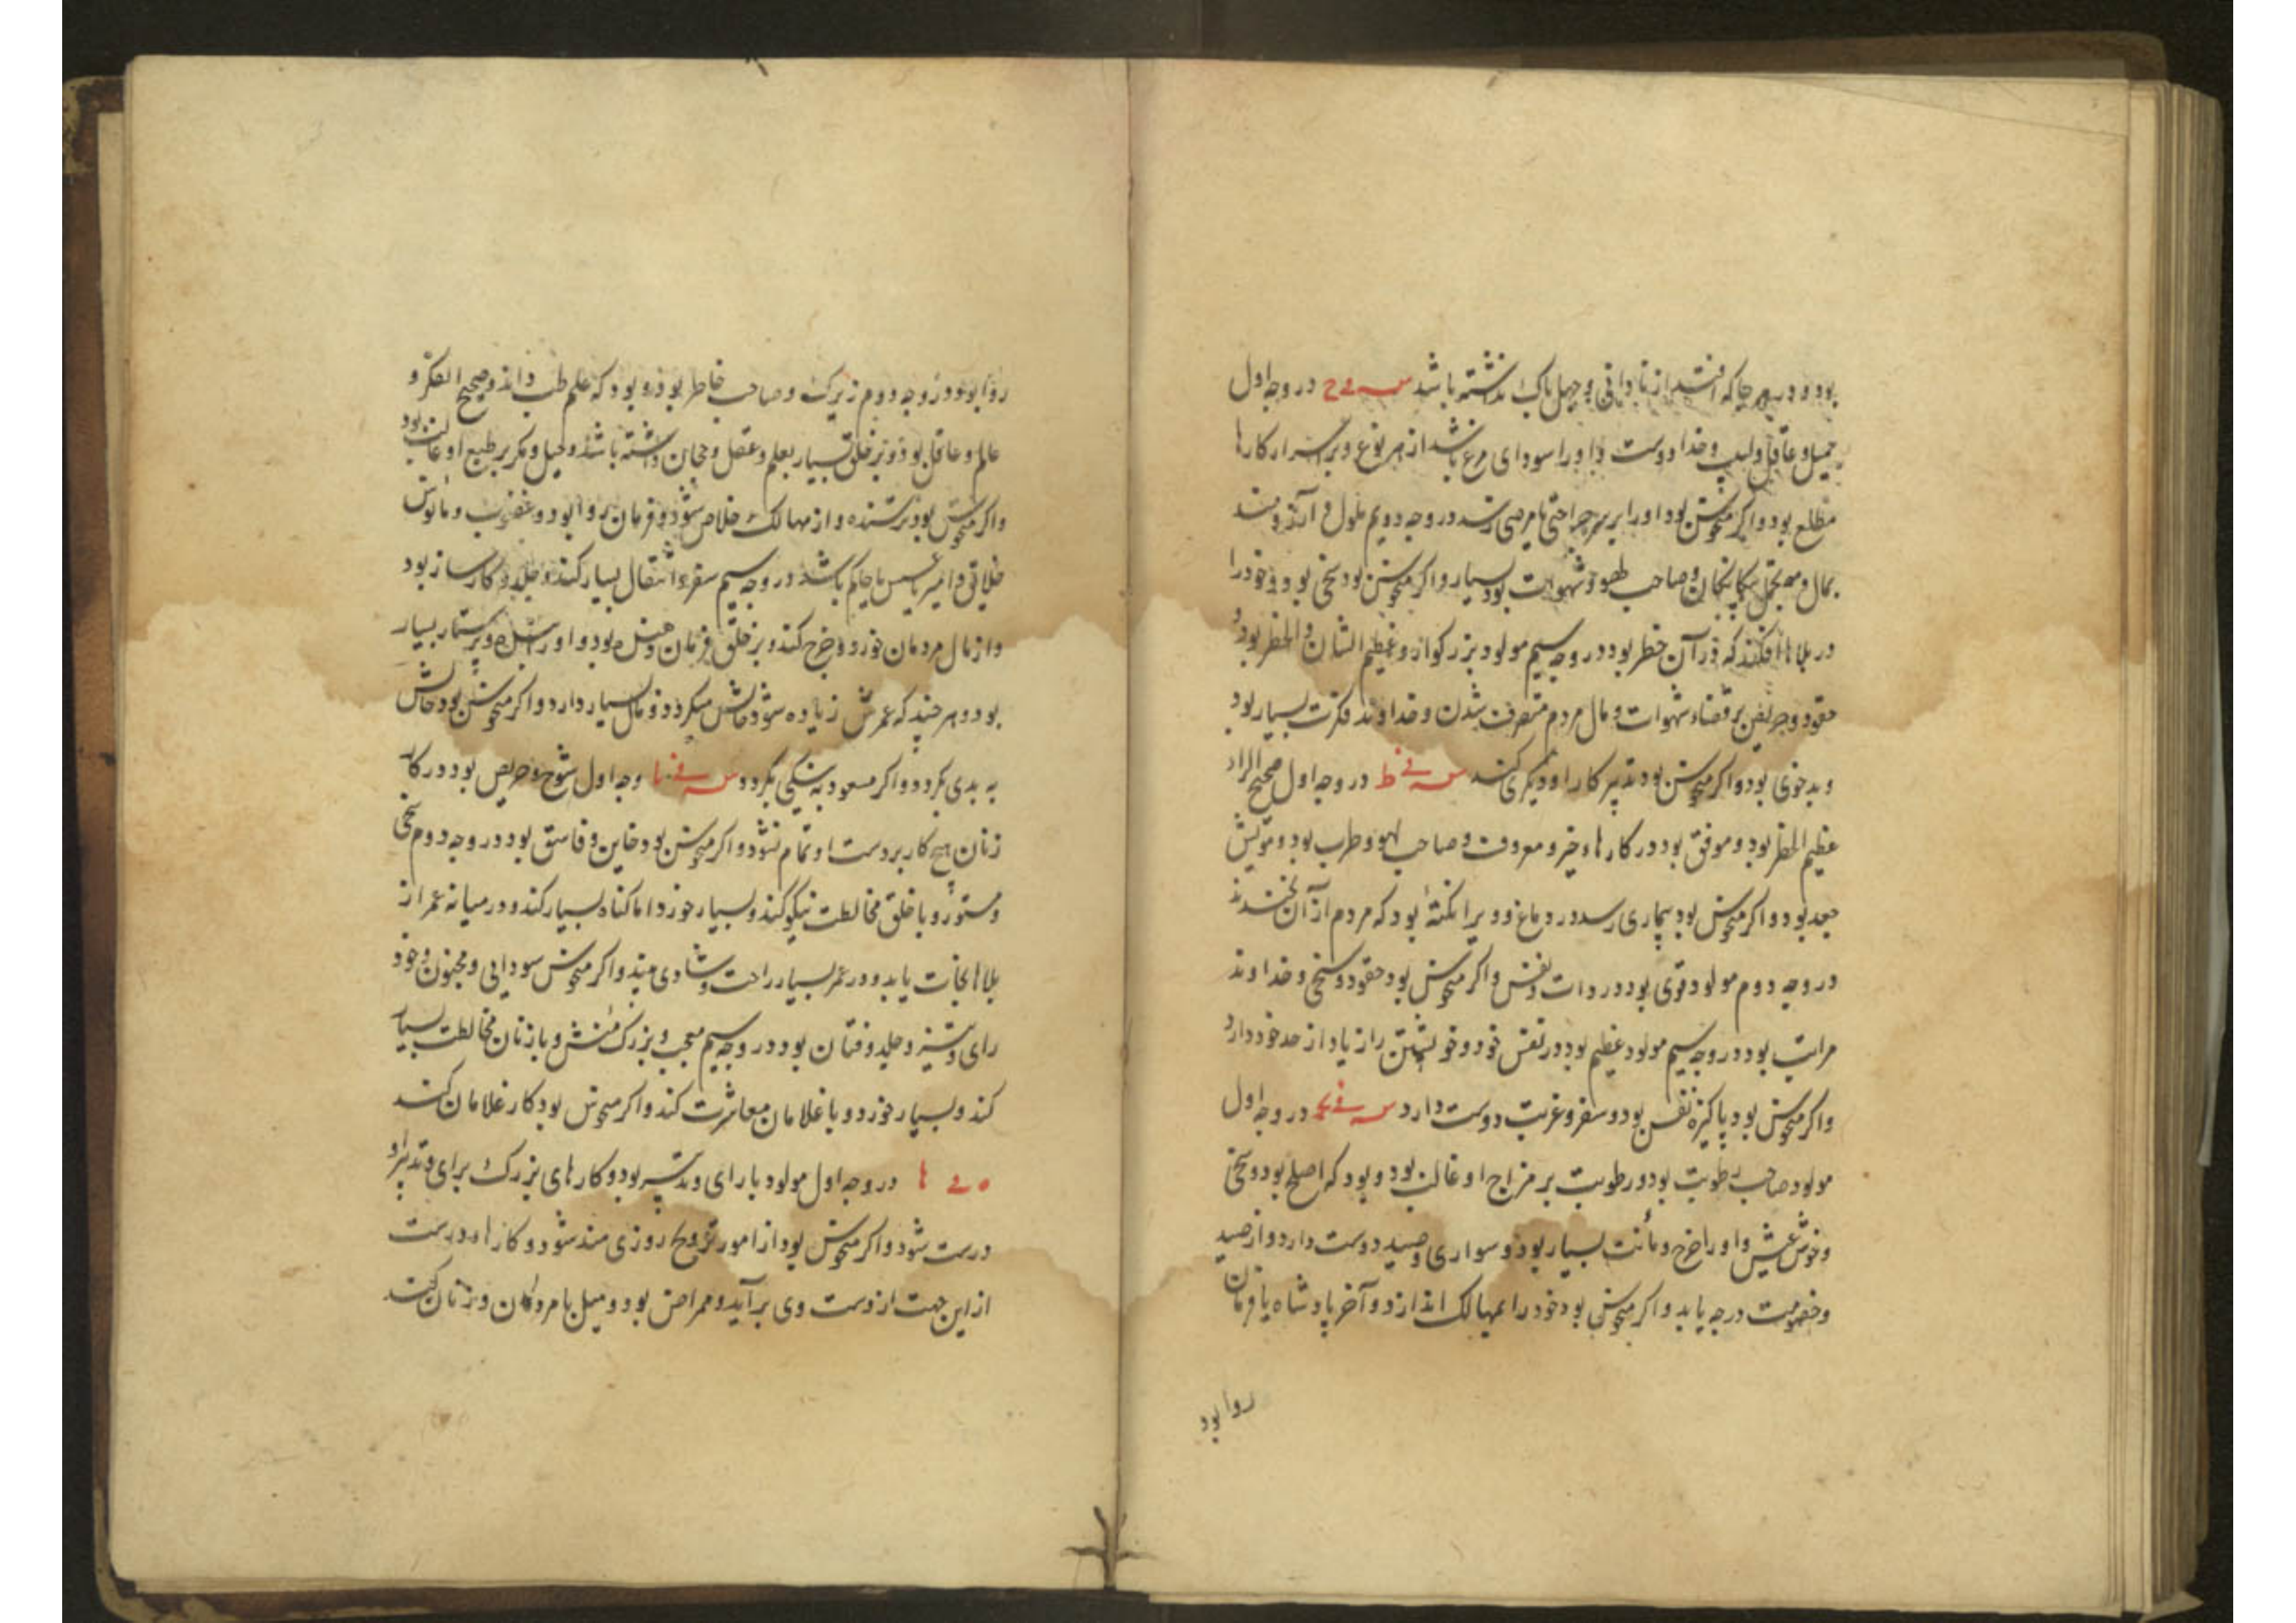 بود و در هر جا که افتد از نادانی و جهل باک نداشته باشد س في ح در وجه اول
جمیل و عاقل و لبیب و خدا دوست و او را سودای مرغ باشد از هر نوع و بر اسرار کارها
مطلع بود و اکر منحوس بود او را بر سر جراحتی یا مرضی رسد در وجه دویم ملول و
بمال و صاحب لهو و شهوات بود بسیار و اکر منحوس بود سخی بود و خود را
در بلاها افکند که در آن خطر بود در وجه سیم مولود بزرکوار و عظیم الشان و الخطر بود و
حقود و حریص بر قضاء شهوات و مال مردم متصرف شدن و خداوند فکرت بسیار بود
و بدخوی بود و اکر منحوس بود تدبیر کار او دیکری کند س في ط در وجه اول صحیح الرای
عظیم الخطر بود و موفق بود در کارها و خیر و معروف و صاحب لهو و طرب بود و مویش
جعد بود و اکر منحوس بود بیماری رسد در دماغ و ویرا نکتهٔ بود که مردم از آن بخندند
در وجه دوم مولود قوی بود در ذات و نفس و اکر منحوس بود حقود و سخی و خداوند
مراتب بود در وجه سیم مولود عظیم بود در نفس خود و خویشتن را زیاد از حد خود دارد
و اکر منحوس بود پاکیزه نفس بود و سفر و غربت دوست دارد س في ی در وجه اول
مولود صاحب رطوبت بود و رطوبت بر مزاج او غالب بود و بود که اصلع بود و سخی
و خوش عیش و او را خرج و مأنت بسیار بود و سواری و صید دوست دارد و از صید
و خصومت درجه یابد و اکر منحوس بود خود را بمهالک اندازد و آخر پادشاه یا فرمان
روا بود
روا بود و در وجه دوم زیرک و صاحب خاطر بود و بود که علم طب داند و صحیح الفکر و
عالم و عاقل بود و بر خلق بسیار بعلم و عقل رجحان داشته باشد و حیل و مکر بر طبع او غالب بود
و اکر منحوس بود ترسنده و از مهالک خلاص شود و فرمان روا بود و غضوب و مأنوس
خلایق و امیر یا عسس یا حاکم باشد در وجه سیم سفر و انتقال بسیار کند و جلد و کارساز بود
و از مال مردمان خورد و خرج کند و بر خلق فرمان دهنده بود و او را بنده و پرستار بسیار
بود و هر چند که عمرش زیاده شود حالش میکردد و مال بسیار دارد و اکر منحوس بود حالش
به بدی بکردد و اکر مسعود به نیکی بکردد س في یا وجه اول شوخ و حریص بود در کار
زنان هیچ کار بر دست او تمام نشود و اکر منحوس بود خاین و فاسق بود در وجه دوم سخی
و مستور و با خلق مخالطت نیکو کند و بسیار خورد اما کناه بسیار کند و در میانه عمر از
بلاها نجات یابد و در عمر بسیار راحت و شادی بیند و اکر منحوس سودایی و مجنون و خود
رای و ستیز و جلد و فتان بود در وجه سیم معجب و بزرک منش و با زنان مخالطت بسیار
کند و بسیار خورد و با غلامان معاشرت کند و اکر منحوس بود کار غلامان کند
ه في ا در وجه اول مولود با رای و تدبیر بود و کارهای بزرک برای و تدبیر او
درست شود و اکر منحوس بود از امور تزویج روزی مند شود و کارها درست
از این جهت از دست وی برآید و ممراض بود و میل با مردان و زنان کند